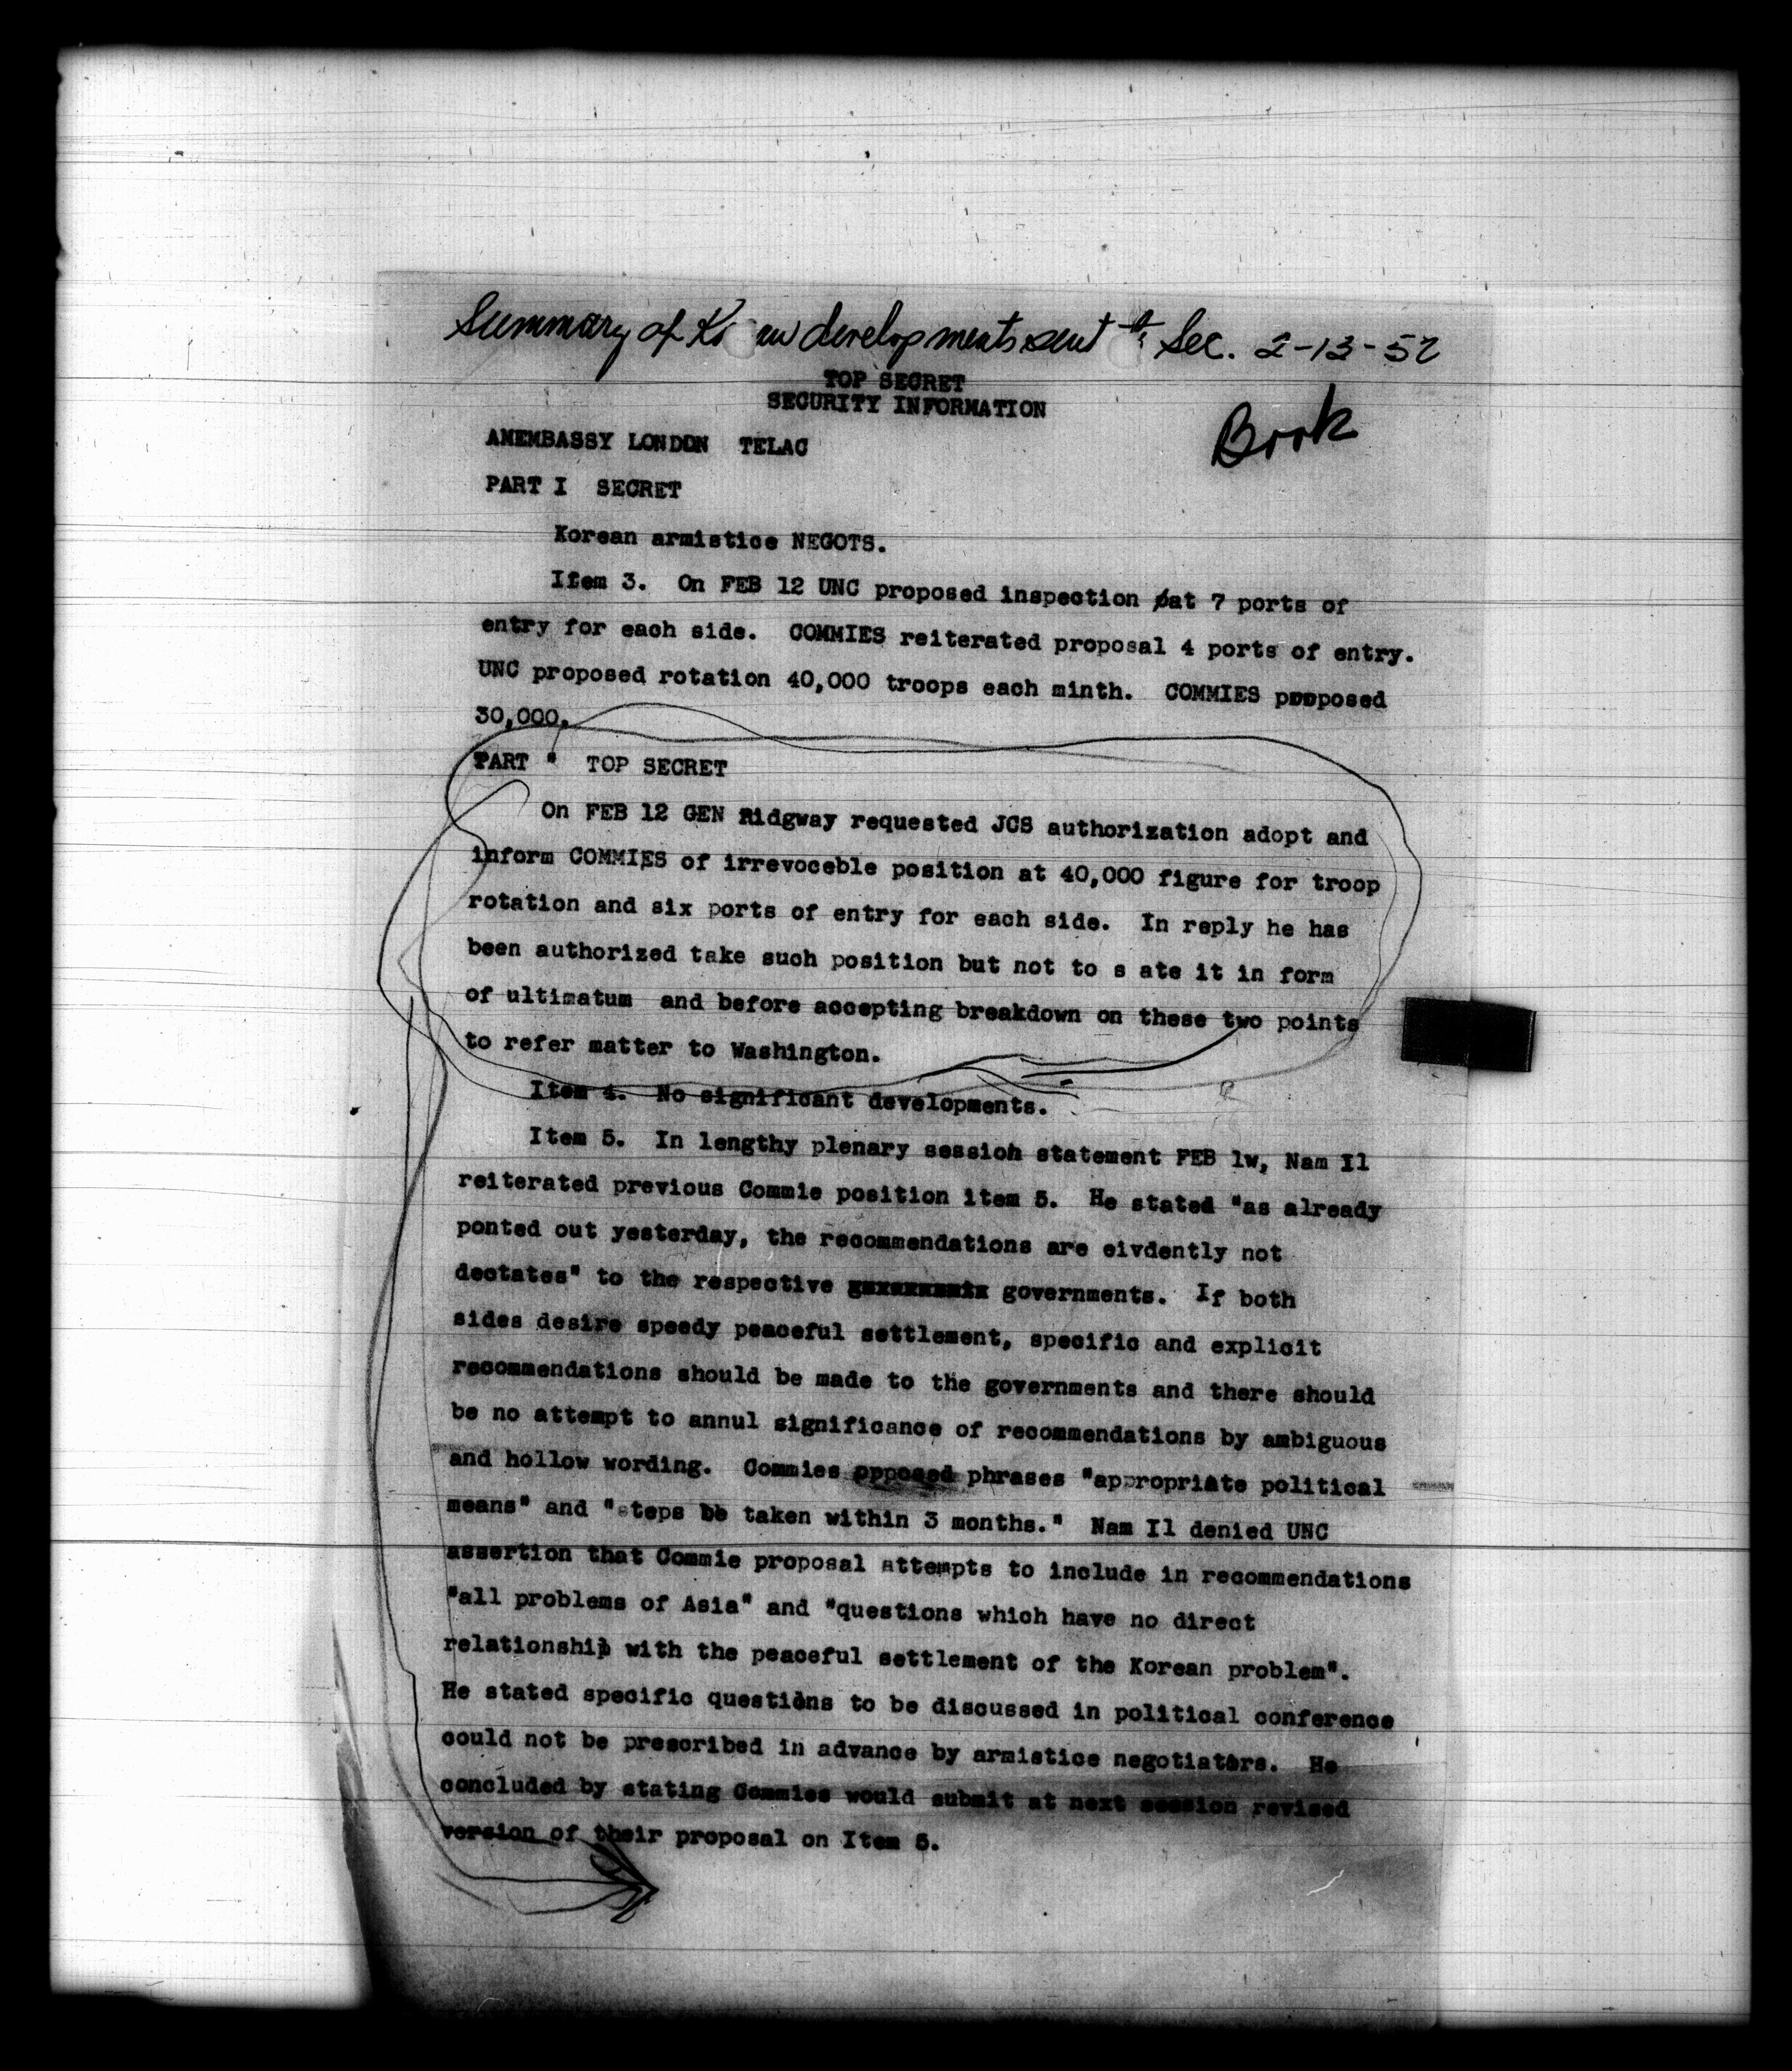 Summary of Ko  an developments sent to Sec. 2-13-52
TOP SECRET
SECURITY INFORMATION
Book
AMEMBASSY LONDON TELAC
PART I SECRET
Korean armistice NEGOTS.
Item 3. On FEB 12 UNC proposed inspection at 7 ports of
entry for each side. COMMIES reiterated proposal 4 ports of entry.
UNC proposed rotation 40,000 troops each minth. COMMIES proposed
30,000.
PART " TOP SECRET
On FEB 12 GEN Ridgway requested JCS authorization adopt and
inform COMMIES of irrevoceble position at 40,000 figure for troop
rotation and six ports of entry for each side. In reply he has
been authorized take such position but not to s ate it in form
of ultimatum and before accepting breakdown on these two points
to refer matter to Washington.
Item 4. No significant developments.
Item 5. In lengthy plenary session statement FEB 1w, Nam Il
reiterated previous Commie position item 5. He stated "as already
ponted out yesterday, the recommendations are eivdently not
dectates" to the respective governments. If both
sides desire speedy peaceful settlement, specific and explicit
recommendations should be made to the governments and there should
be no attempt to annul significance of recommendations by ambiguous
and hollow wording. Commies opposed phrases "appropriate political
means" and "steps be taken within 3 months." Nam Il denied UNC
assertion that Commie proposal attempts to include in recommendations
"all problems of Asia" and "questions which have no direct
relationship with the peaceful settlement of the Korean problem".
He stated specific questions to be discussed in political conference
could not be prescribed in advance by armistice negotiators. He
concluded by stating Commies would submit at next session revised
version of their proposal on Item 5.